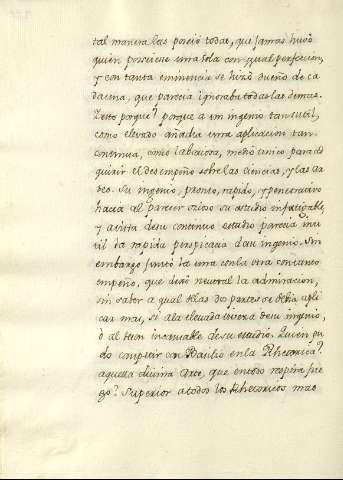 tal manera las poseió todas, que jamas huvo
quien posseiese una sola con igual perfeccion,
y con tanta eminencia se hizo dueño de ca
da una, que parecia ignoraba todas las demas.
Y esto porque? porque a un ingenio tan sutil,
como elevado añadia una aplicacion tan
continua, como laboriosa, medio unico para ad
quirir el desempeño sobre las ciencias, y las ar
tes. Su ingenio, pronto, rapido, y penetrativo
hacia al parecer ocioso su estudio infatigable,
y a vista de su continuo estudio parecia inu
til la rapida perspicacia de su ingenio. Sin
embargo juntò la una con la otra con tanto
empeño, que dexò neutral la admiracion,
sin saber a qual de las dos partes se debia apli
car mas, si a la elevada viveza de su ingenio,
ò al teson incansable de su estudio. Quien pu
do competir con Basilio en la Rhetorica?
aquella divina arte, que en todo respira fue
go? Superior a todos los Rhetoricos mas